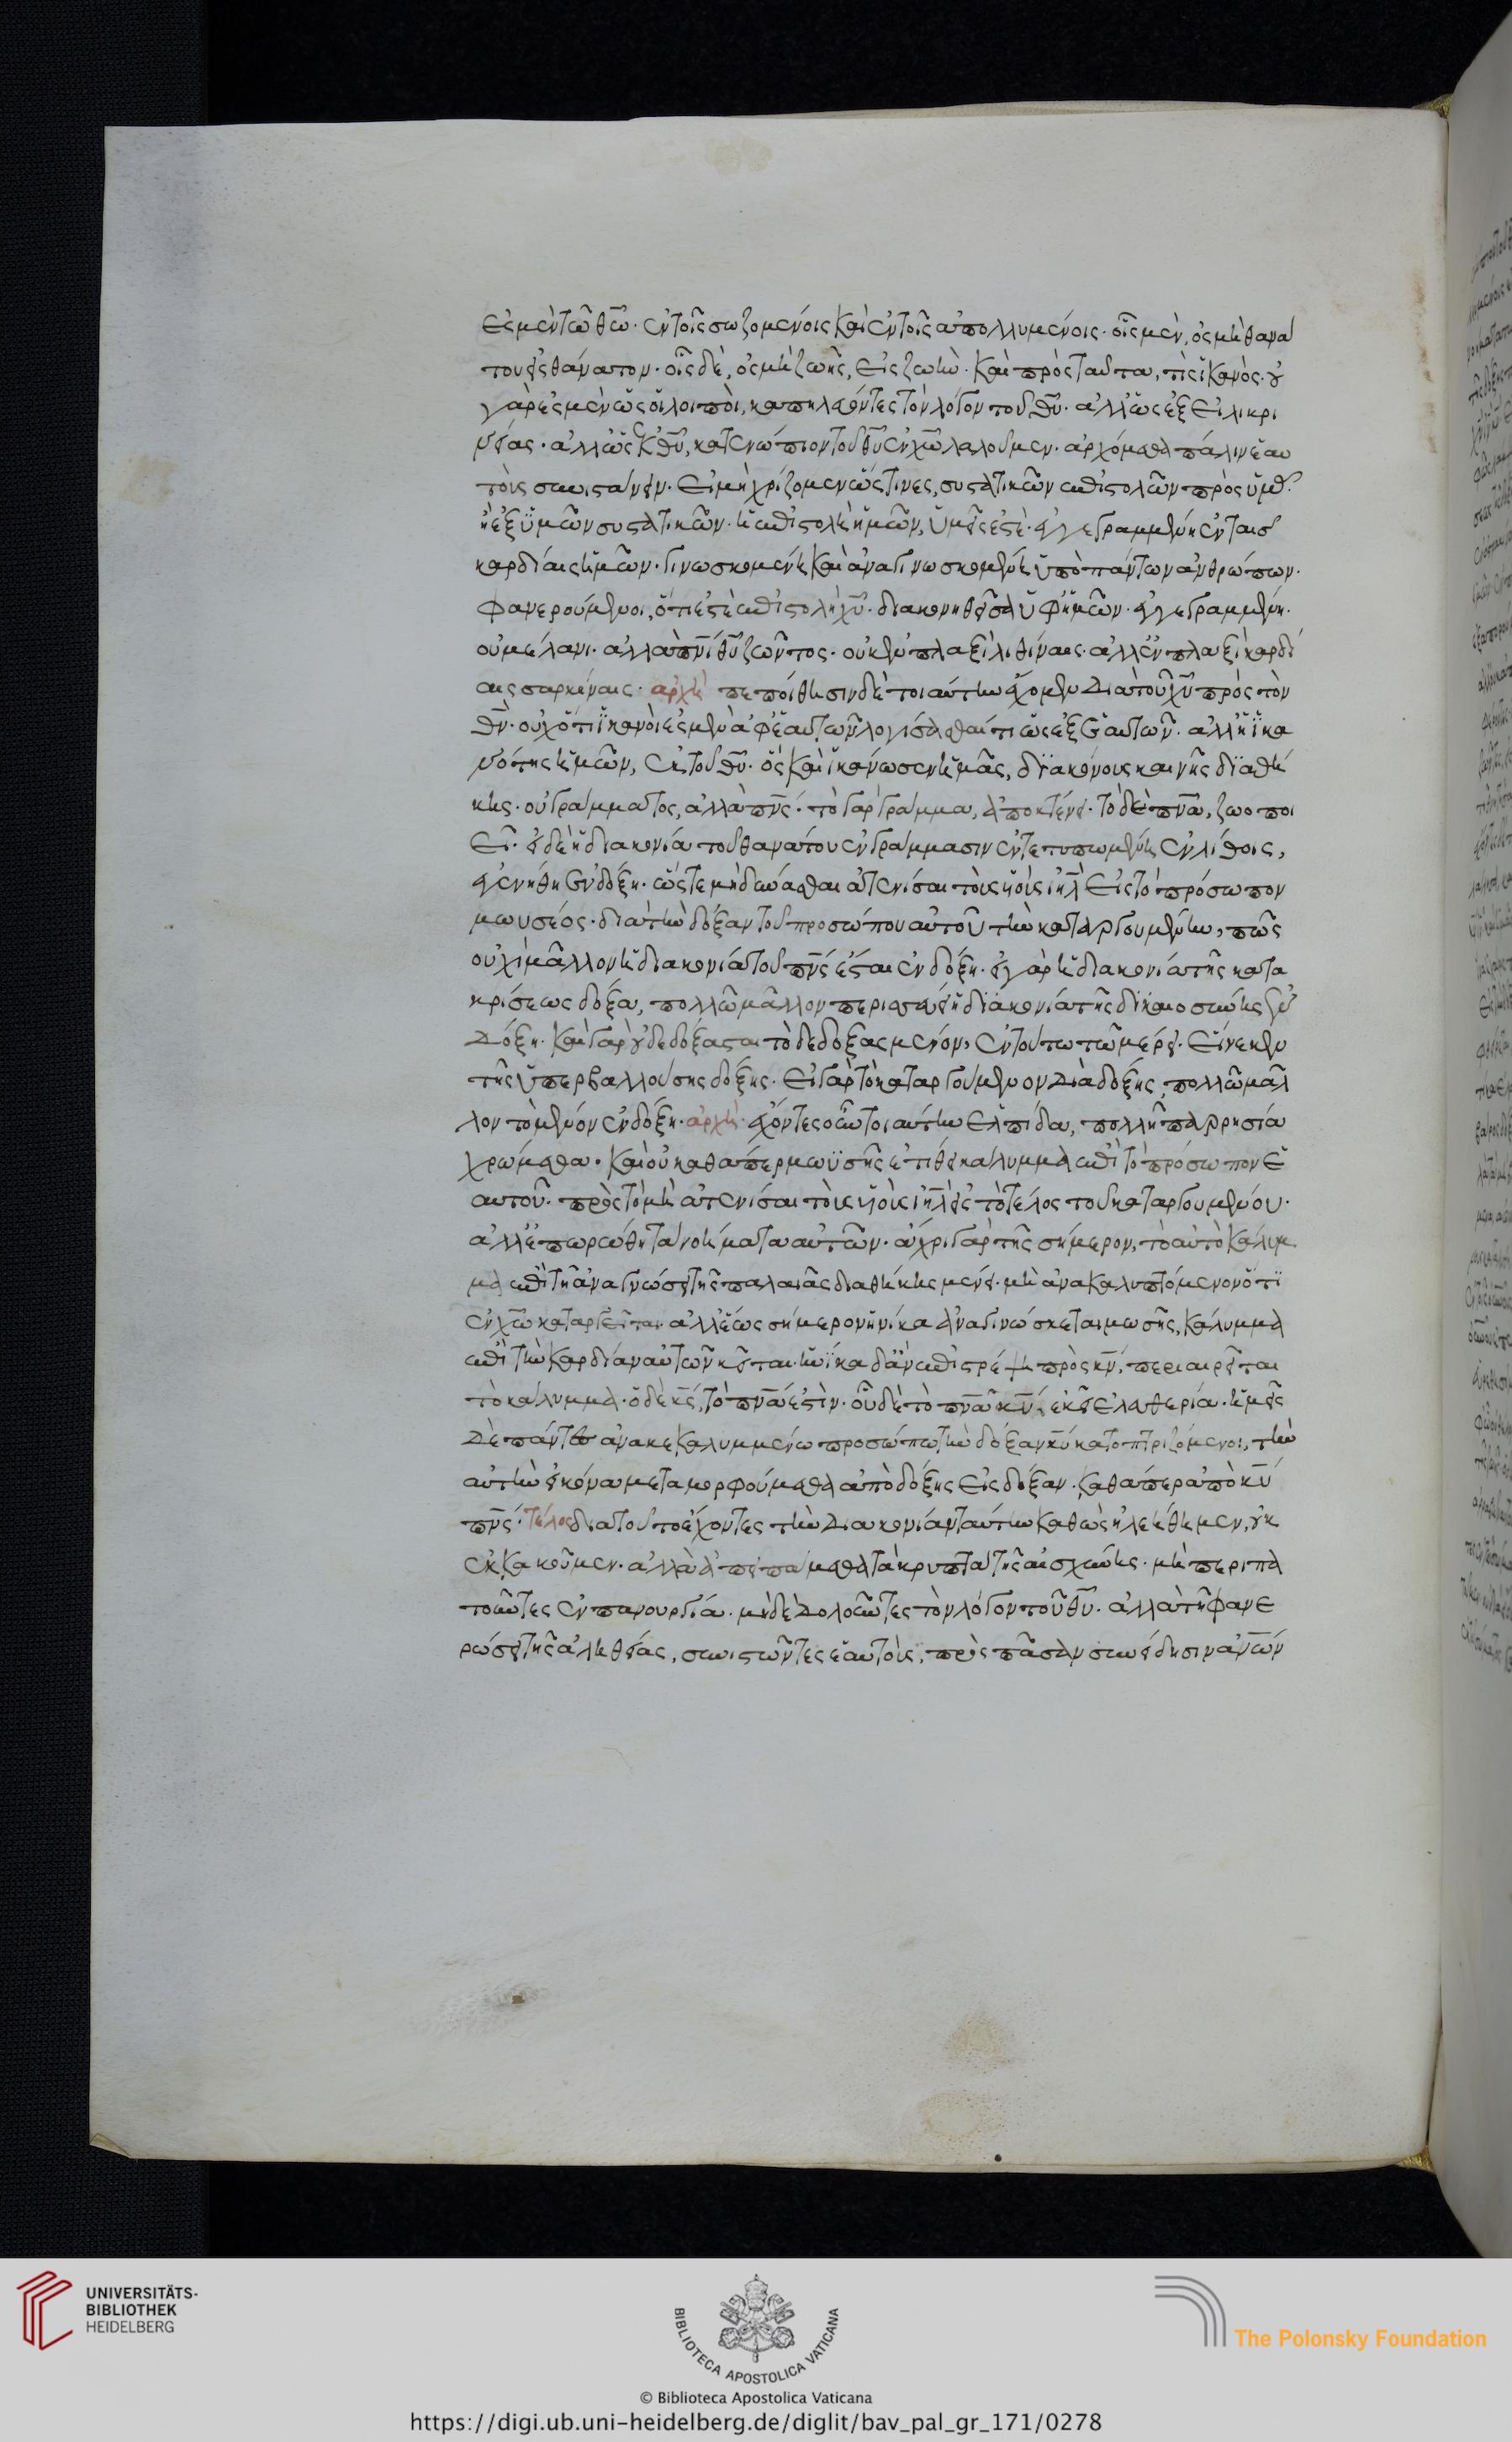 ἐσμὲν τῶ θω̅· ἐν τοῖς σωζομένοις καὶ ἐν τοῖς ἀπολλυμένοις· οἷς μὲν, ὀσμὴ θανά
του εἰς θάνατον· οἷς δὲ, ὀσμὴ ζωῆς, εἰς ζωήν· καὶ πρὸς ταῦτα, τίς ἱκανός· οὐ
γάρ ἐσμεν ὡς οἱ λοιποὶ, καπηλεύοντες τὸν λόγον τοῦ θυ̅· ἀλλ ὡς ἐξ εἰλικρι
νείας· ἀλλ ὡς ἐκ θυ̅, κατενώπιον τοῦ θυ̅ ἐν χω̅ λαλοῦμεν· ἀρχόμεθα πάλιν ἑαυ
τοὺς συνιστάνειν· εἰ μὴ χρίζομεν ὥς τινες, συστατικῶν ἐπιστολῶν πρὸς ὑμᾶς·
ἢ ἐξ ὑμῶν συστατικῶν· ἡ ἐπιστολὴ ἡμῶν, ὑμεῖς ἐστὲ· ἐγγεγραμμένη ἐν ταῖς
καρδίαις ἡμῶν· γινωσκομένη καὶ ἀναγινωσκομένη ὑπὸ πάντων ἀνθρώπων·
φανερούμενοι, ὅτι ἐστὲ ἐπιστολὴ χυ̅· διακονηθεῖσα ὑφ ἡμῶν· ἐγγεγραμμένη·
οὐ μέλανι· ἀλλὰ πνι̅ θυ̅ ζῶντος· οὐκ ἐν πλαξὶ λιθίναις· ἀλλ ἐν πλαξὶ καρδί
αις σαρκίναις· ἀρχὴ πεποίθησιν δὲ τοιαύτην ἔχομεν διὰ τοῦ χυ̅ πρὸς τὸν
θν̅· οὐχ ὅτι ἱκανοί ἐσμεν ἀφ ἑαυτῶν λογίσασθαί τι ὡς ἐξ ἑαυτῶν· ἀλλ ἡ ἱκα
νότης ἡμῶν, ἐκ τοῦ θυ̅· ὃς καὶ ἱκάνωσεν ἡμᾶς, διακόνους καινῆς διαθή
κης· οὐ γράμματος, ἀλλὰ πνς̅· τὸ γὰρ γράμμα, ἀποκτένει· τὸ δὲ πνα̅, ζωοποι
εῖ· εἰ δὲ ἡ διακονία τοῦ θανάτου ἐν γράμμασιν ἐντετυπωμένη ἐν λίθοις,
ἐγενήθη ἐν δόξη· ὥστε μὴ δύνασθαι ἀτενίσαι τοὺς υἱοὺς ιηλ̅ εἰς τὸ πρόσωπον
μωυσέος· διὰ τὴν δόξαν τοῦ προσώπου αὐτοῦ τὴν καταργουμένην, πῶς
οὐχὶ μᾶλλον ἡ διακονία τοῦ πνς̅ ἔσται ἐν δόξη· εἰ γὰρ ἡ διακονία τῆς κατα
κρίσεως δόξα, πολλῶ μᾶλλον περισσεύει ἡ διακονία τῆς δικαιοσύνης ἐν
δόξη· καὶ γὰρ οὐ δεδόξασται τὸ δεδοξασμένον, ἐν τούτω τῶ μέρει· εἵνεκεν
τῆς ὑπερβαλλούσης δόξης· εἰ γὰρ τὸ καταργούμενον διὰ δόξης, πολλῶ μᾶλ
λον τὸ μένον ἐν δόξη· ἀρχὴ· ἔχοντες οὖν τοιαύτην ἐλπίδα, πολλῆ παρρησία
χρώμεθα· καὶ οὐ καθάπερ μωϋσῆς ἐτίθει κάλυμμα ἐπὶ τὸ πρόσωπον ἑ
αυτοῦ· πρὸς τὸ μὴ ἀτενίσαι τοὺς υἱοὺς ιηλ̅ εἰς τὸ τέλος τοῦ καταργουμένου·
ἀλλ ἐπωρώθη τὰ νοήματα αὐτῶν· ἄχρι γὰρ τῆς σήμερον, τὸ αὐτὸ κάλυμ
μα ἐπὶ τῆ ἀναγνώσει τῆς παλαιᾶς διαθήκης μένει· μὴ ἀνακαλυπτόμενον ὅτι
ἐν χω̅ καταργεῖται· ἀλλ ἕως σήμερον ἡνίκα ἀναγινώσκεται μωσῆς, κάλυμμα
ἐπὶ τὴν καρδίαν αὐτῶν κεῖται· ἡνίκα δ ἂν ἐπιστρέψη πρὸς κν̅, περιαιρεῖται
τὸ κάλυμμα· ὁ δὲ κς̅, τὸ πνα̅ ἐστὶν· οὗ δὲ τὸ πνα̅ κυ̅, ἐκεῖ ἐλευθερία· ἡμεῖς
δὲ πάντες ἀνακεκαλυμμένω προσώπω τὴν δόξαν κυ̅ κατοπτριζόμενοι, τὴν
αὐτὴν εἰκόνα μεταμορφούμεθα ἀπὸ δόξης εἰς δόξαν· καθάπερ ἀπὸ κυ̅
πνς̅· τέλος διὰ τοῦτο ἔχοντες τὴν διακονίαν ταύτην καθὼς ἠλεήθημεν, οὐκ
ἐκκακοῦμεν· ἀλλὰ ἀπειπάμεθα τὰ κρυπτὰ τῆς αἰσχύνης· μὴ περιπα
τοῦντες ἐν πανουργία· μηδὲ δολοῦντες τὸν λόγον τοῦ θυ̅· ἀλλὰ τῆ φανε
ρώσει τῆς ἀληθείας, συνιστῶντες ἑαυτοὺς, πρὸς πᾶσαν συνείδησιν ἀνων̅
UNIVERSITÄTS-
BIBLIOTHEK
HEIDELBERG
BIBLIOTECA APOSTOLICA VATICANA
© Biblioteca Apostolica Vaticana
The Polonsky Foundation
https://digi.ub.uni-heidelberg.de/diglit/bav_pal_gr_171/0278